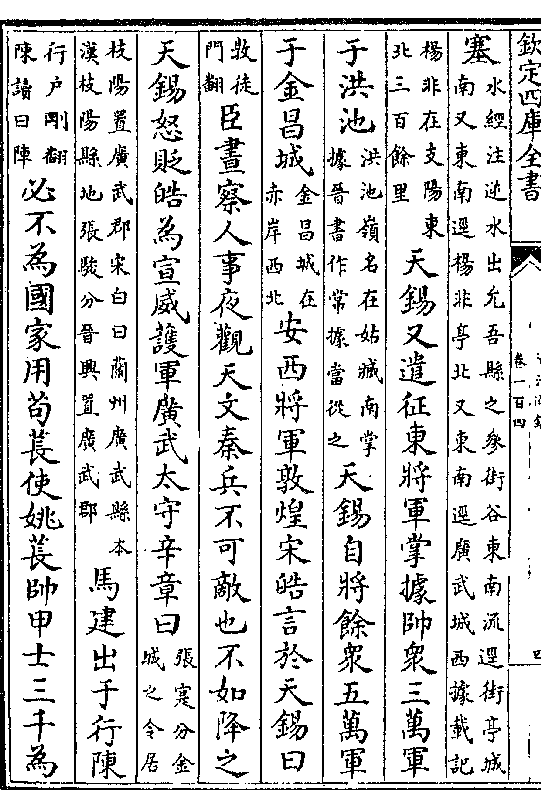 欽定四庫全書
卷一百四
四
塞水經注逆水出允吾縣之參街谷東南流逕街亭城南又東南逕楊非亭北又東南逕廣武城西據載記
楊非在支陽東北三百餘里天錫又遣征東將軍掌據帥衆三萬軍
于洪池洪池嶺名在姑臧南掌據晉書作常據當從之天錫自將餘衆五萬軍
于金昌城金昌城在赤岸西北安西將軍敦煌宋皓言於天錫曰
敦徒門翻臣晝察人事夜觀天文秦兵不可敵也不如降之
天錫怒貶皓為宣威護軍廣武太守辛章曰張寔分金城之令居
枝陽置廣武郡宋白曰蘭州廣武縣本漢枝陽縣地張駿分晉興置廣武郡馬建出于行陳
行户剛翻陳讀曰陣必不為國家用苟萇使姚萇帥甲士三千為